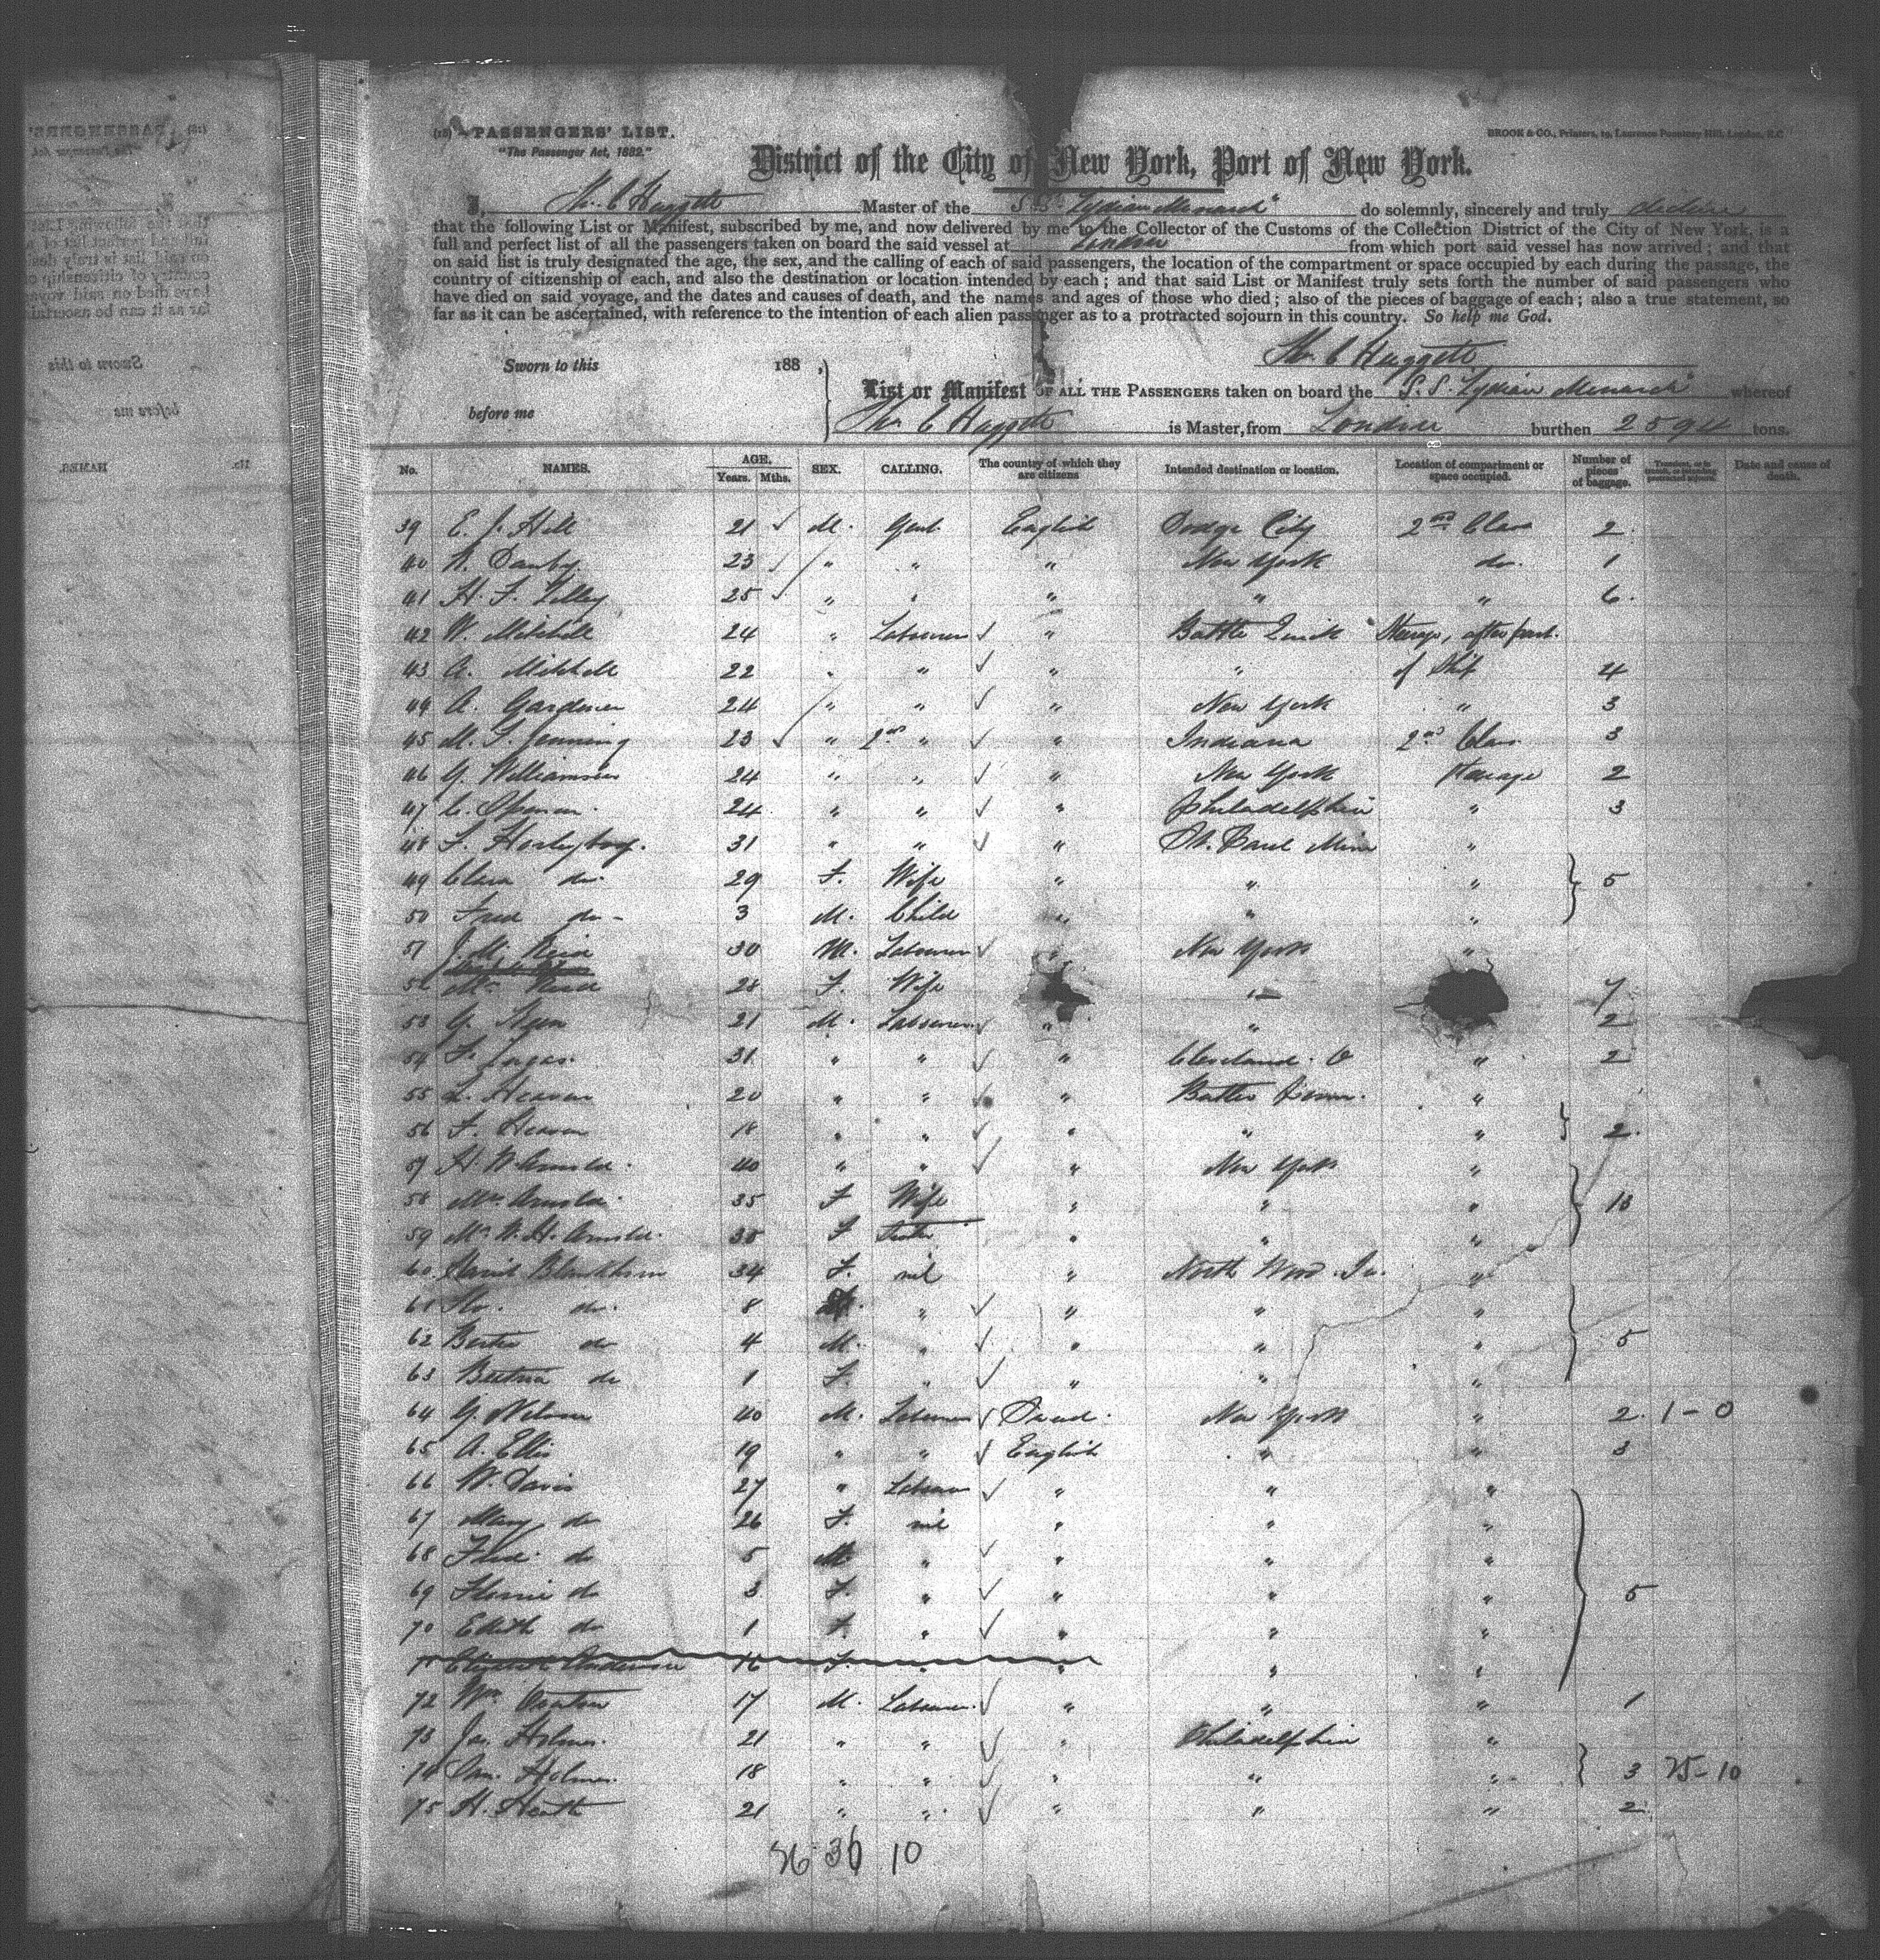 (18) PASSENGERS' LIST.
"The Passenger Act, 1882."
BROOK & CO., Printers, 19, Laurence Pountney Hill, London, E.C.
District of the City of New York, Port of New York.
I, Tho. C Huggett Master of the S.S. "Lydian Monarch" do solemnly, sincerely and truly declare
that the following List or Manifest, subscribed by me, and now delivered by me to the Collector of the Customs of the Collection District of the City of New York, is a
full and perfect list of all the passengers taken on board the said vessel at London from which port said vessel has now arrived; and that
on said list is truly designated the age, the sex, and the calling of each of said passengers, the location of the compartment or space occupied by each during the passage, the
country of citizenship of each, and also the destination or location intended by each; and that said List or Manifest truly sets forth the number of said passengers who
have died on said voyage, and the dates and causes of death, and the names and ages of those who died; also of the pieces of baggage of each; also a true statement, so
far as it can be ascertained, with reference to the intention of each alien passenger as to a protracted sojourn in this country. So help me God.
Tho. C Huggett
Sworn to this 188 ,
List or Manifest OF ALL THE PASSENGERS taken on board the S.S. "Lydian Monarch" whereof
before me
Tho. C Huggett is Master, from London burthen 2594 tons.
No. NAMES. AGE. Years. Mths. SEX. CALLING. The country of which they are citizens Intended destination or location. Location of compartment or space occupied. Number of pieces of baggage. Date and cause of death.
39 E. J. Hill 21 M. Gent. English Dodge City 2nd Class 2
40 W. Danby 23 " " " New York do. 1
41 H. F. Tilley 25 " " " " " 6
42 W. Mitchell 24 " Labourer " Battle Steerage, after part
43 A. Mitchell 22 " " " " of Ship 4
44 A. Gardiner 24 " " " New York " 3
45 M. T. Jenning 23 " " " Indiana 2nd Class 3
46 G. Williamson 24 " " " New York Steerage 2
47 C. 24 " " " Philadelphia " 3
48 F. 31 " " " St. Paul Minn "
49 Clara do. 29 F. Wife " " " 5
50 Fred do 3 M. Child " " "
51 J. M. 30 M. Labourer " New York "
52 Mrs 28 F. Wife " 7
53 G. 21 M. Labourer " " 2
54 F. 31 " " " Cleveland. O " 2
55 L. Heaven 20 " " " "
56 F. Heaven 18 " " " " " 2
57 H. W. Arnold 40 " " " New York "
58 Mrs Arnold 35 F Wife " " " 10
59 Mrs W. H. Arnold 35 F " " "
60 34 F. nil " North Wood. Io. "
61 do. 8 " " " "
62 Bertie do 4 M. " " " " 5
63 do 1 F. " " " "
64 G. Nelson 40 M. Labourer New York " 2 1-0
65 A. Ellis 19 " " English " " 3
66 W. Davis 27 " Labourer " " "
67 Mary do 26 F. nil " " "
68 Fred. do 5 M. " " " "
69 Florrie do 3 F. " " " " 5
70 Edith do 1 F. " " " "
71 Anderson 16 F. " " " "
72 Wm 17 M. Labourer " " " 1
73 Jas. Holmes 21 " " " Philadelphia "
74 Holmes 18 " " " " " 3 25-10
75 H. Heath 21 " " " " " 2
36 10